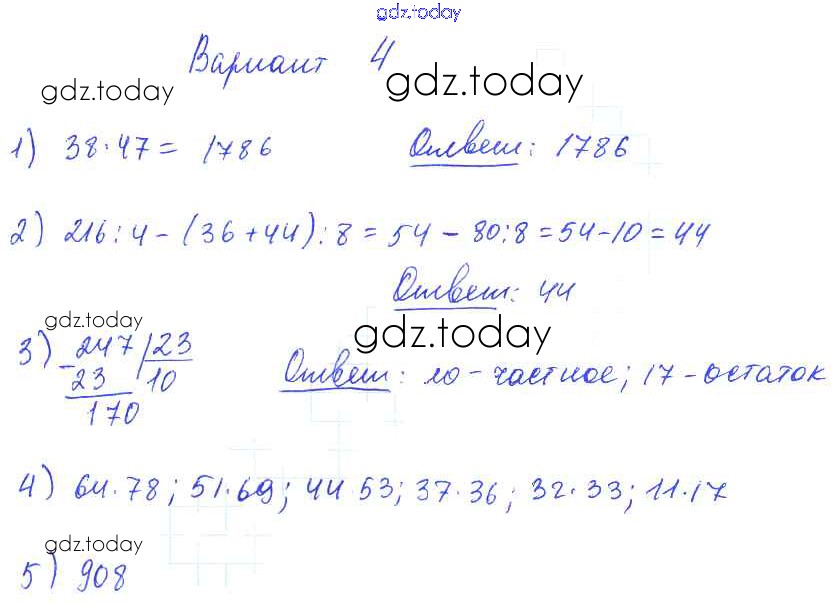 gdz.today
Вариант 4
gdz.today gdz.today
1) 38·47 = 1786 Ответ: 1786
2) 216:4 - (36+44):8 = 54 - 80:8 = 54-10 = 44
Ответ: 44
gdz.today
gdz.today
3) - 247 | 23
23 10
170
Ответ: 10 - частное; 17 - остаток
4) 64·78; 51·69; 44·53; 37·36; 32·33; 11·17
gdz.today
5) 908